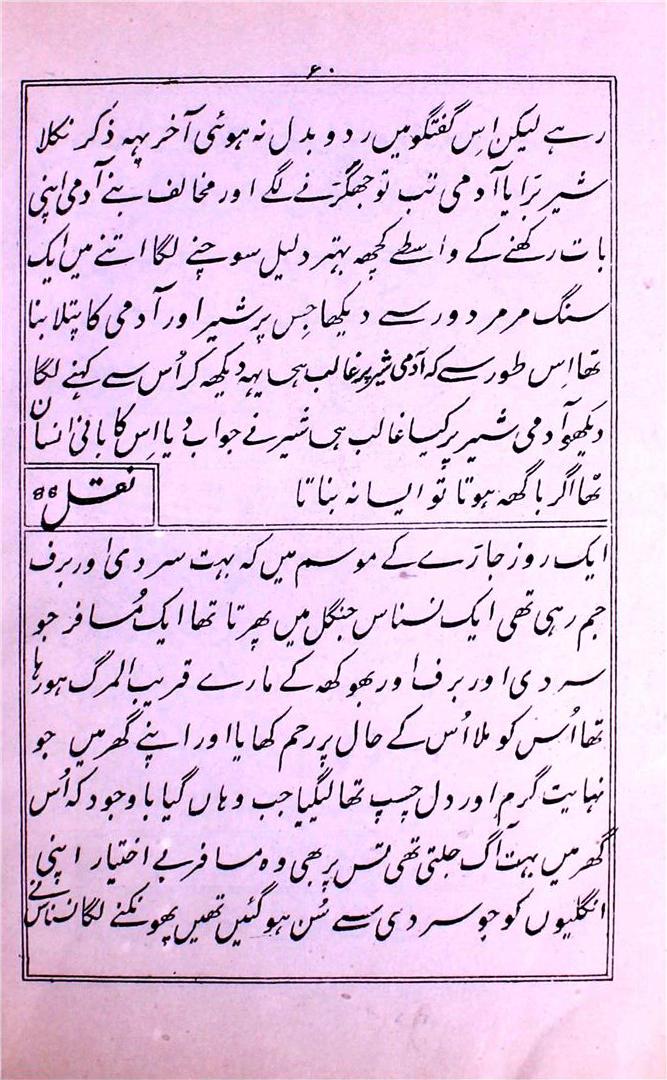 ۶۰
رہے لیکن اِس گفتگو میں رد و بدل نہ ہوئی آخر یہہ ذکر نکلا
شیر بڑا یا آدمی تب تو جھگڑنے لگے اور مخالف بنے آدمی اپنی
بات رکھنے کے واسطے کچھہ بہتر دلیل سوچنے لگا اتنے میں ایک
سنگ مرمر دور سے دیکھا جِس پر شیر اور آدمی کا پتلا بنا
تھا اِس طور سے کہ آدمی شیر پر غالب ہی یہہ دیکھہ کر اُس سے کہنے لگا
دیکھو آدمی شیر پر کیسا غالب ہی شیر نے جواب دیا اِس کا بانی انسان
تھا اگر باگھہ ہوتا تو ایسا نہ بناتا
نقل
ایک روز جاڑے کے موسم میں کہ بہت سردی اور برف
جم رہی تھی ایک نسناس جنگل میں پھرتا تھا ایک مُسافر جو
سردی اور برف اور بھوکھہ کے مارے قریب المرگ ہو رہا
تھا اُس کو ملا اُس کے حال پر رحم کھایا اور اپنے گھر میں جو
نہایت گرم اور دل چسپ تھا لیگیا جب وہاں گیا باوجود کہ اُس
گھر میں بہت آگ جلتی تھی تس پر بھی وہ مسافر بے اختیار اپنی
انگلیوں کو جو سردی سے سُن ہو گئیں تھیں پھونکنے لگا نسناس نے